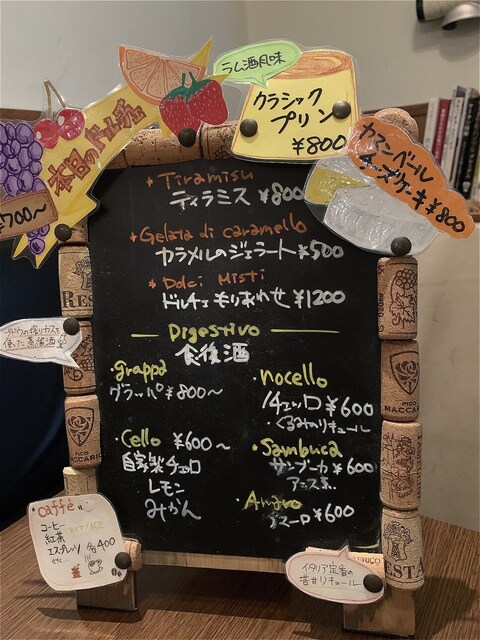 本日のドルチェ
¥700～
ラム酒風味
クラシック
プリン
¥800
カマンベール
チーズケーキ ¥800
Tiramisu
ティラミス ¥800
Gelato di caramello
カラメルのジェラート ¥500
Dolci Misti
ドルチェもりあわせ ¥1200
Digestivo
食後酒
・Grappa
グラッパ ¥800～
ブドウの搾りカスを
使った蒸留酒
・Cello ¥600～
自家製チェッロ
レモン
みかん
・nocello
ノチェッロ ¥600
・くるみのリキュール
・Sambuca
サンブーカ ¥600
アニス系
・Amaro
アマーロ ¥600
イタリア定番の
苦甘リキュール
caffé
コーヒー HOT/ICE
紅茶
エスプレッソ 各400
etc...
PICO
MACCARIO